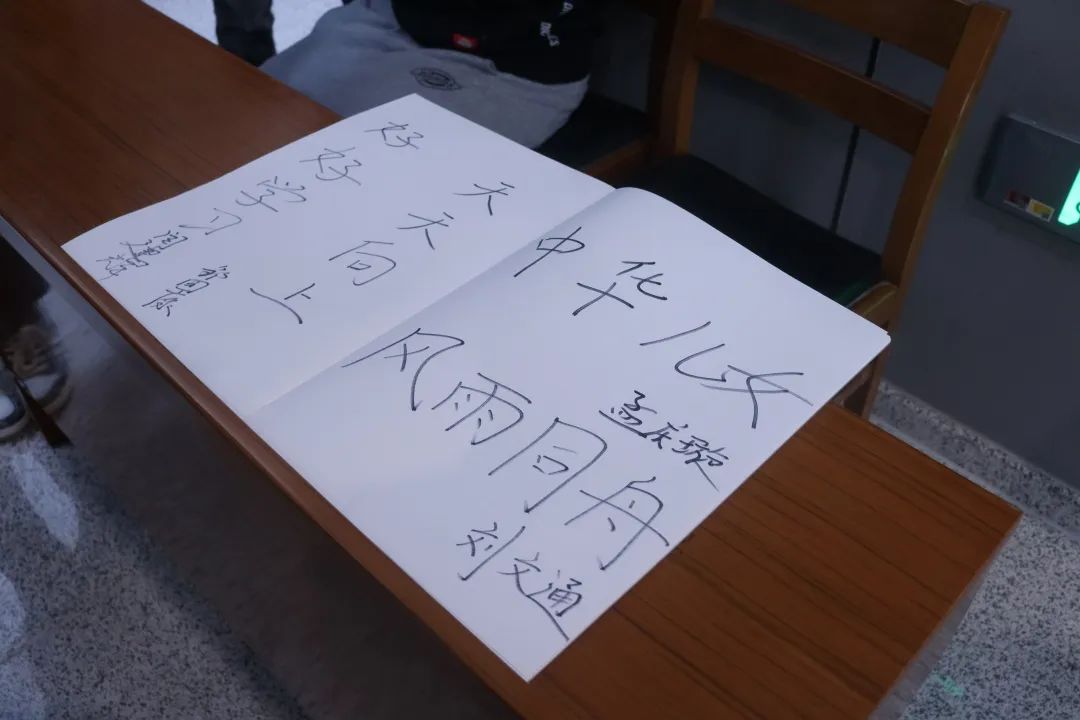 好好学习
天天向上
中华儿女
风雨同舟
孟庆璇
刘文通